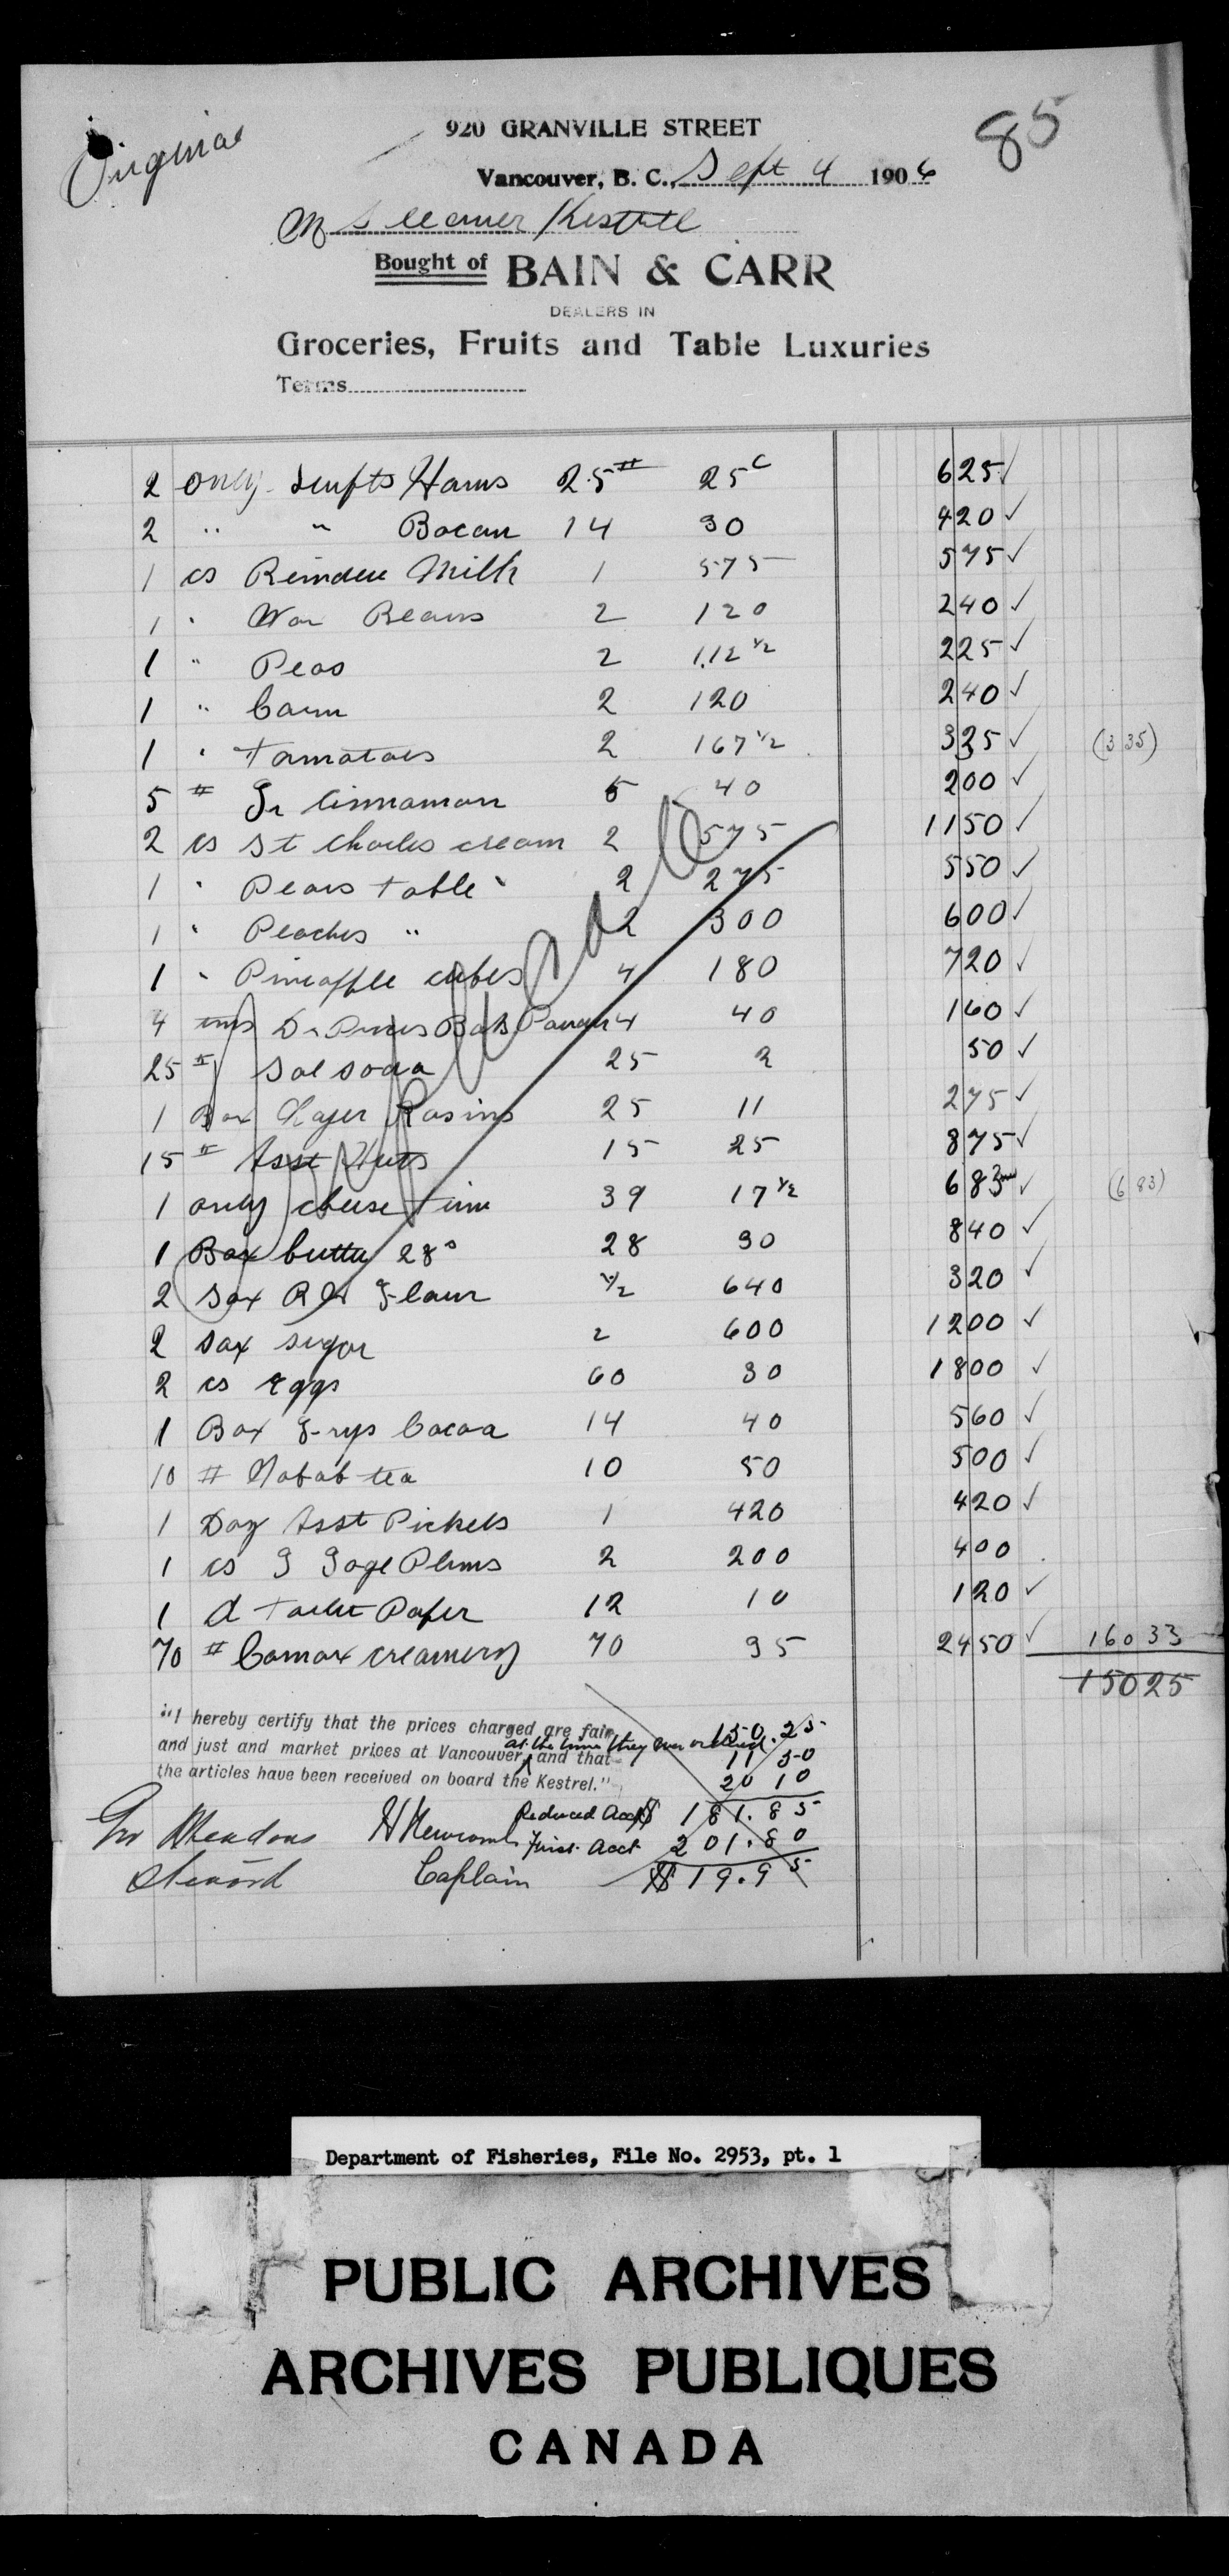 Original
85
920 GRANVILLE STREET
Vancouver, B. C., Sept 4 1906
M Steamer Kestrel
Bought of BAIN & CARR
DEALERS IN
Groceries, Fruits and Table Luxuries
Terms
2 only Swifts Hams 25# 25c 625 ✓
2 " " Bacon 14 30 420 ✓
1 cs Reindeer Milk 1 575 575 ✓
1 " Wax Beans 2 120 240 ✓
1 " Peas 2 1.12 1/2 225 ✓
1 " Corn 2 120 240 ✓
1 " Tomatoes 2 167 1/2 325 ✓ (335)
5 # Gr Cinnamon 5 40 200 ✓
2 cs St Charles cream 2 575 1150 ✓
1 " Pears table 2 275 550 ✓
1 " Peaches " 2 300 600 ✓
1 " Pineapple cubes 4 180 720 ✓
4 tins Dr Prices Bak Powder 4 40 160 ✓
25 # Sal soda 25 2 50 ✓
1 Box Layer Rasins 25 11 275 ✓
15 # Asst Nuts 15 25 875 ✓
1 only cheese 39 17 1/2 683 ✓ (683)
1 Box butter 28s 28 30 840 ✓
2 Sax Flour 1/2 640 320 ✓
2 Sax sugar 2 600 1200 ✓
2 cs Eggs 60 30 1800 ✓
1 Box Frys Cocoa 14 40 560 ✓
10 # Nabob tea 10 50 500 ✓
1 Doz Asst Pickels 1 420 420 ✓
1 cs G Gage Plums 2 200 400
1 d Toilet Paper 12 10 120 ✓
70 # Comox creamery 70 35 2450 ✓ 16033
15025
"I hereby certify that the prices charged are fair 150.25
and just and market prices at Vancouver at the time they were ordered and that 11 50
the articles have been received on board the Kestrel." 20 10
Reduced Acct $ 181.85
Geo Meadows H Newcomb First Acct 201.80
Steward Captain $19.95
Department of Fisheries, File No. 2953, pt. 1
PUBLIC ARCHIVES
ARCHIVES PUBLIQUES
CANADA